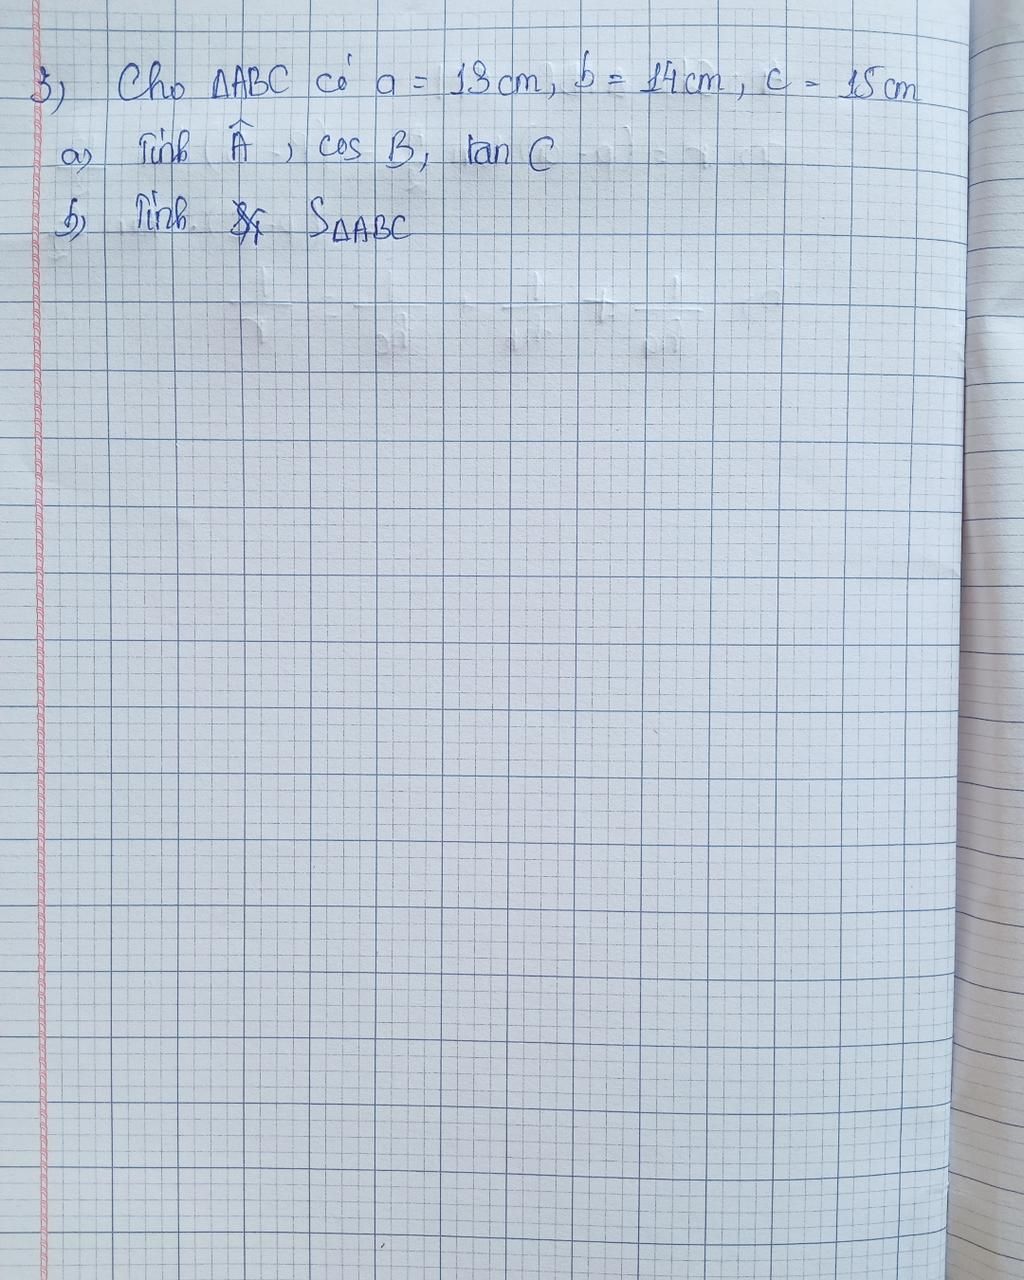 3) Cho ΔABC có a = 13cm, b = 14cm, c = 15cm
a) Tính Â, cos B, tan C
b) Tính SΔABC